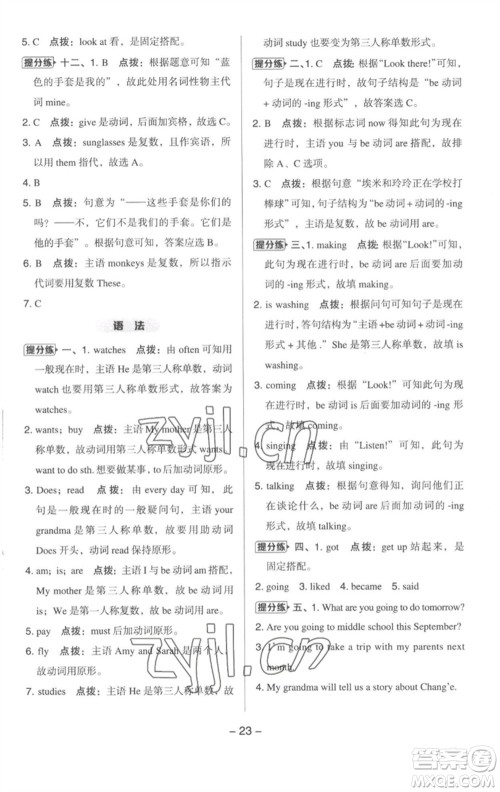 5. C 点拨：look at 看，是固定搭配。
提分练 十二、1. B 点拨：根据题意可知“蓝
色的手套是我的”，故此处用名词性物主代
词 mine。
2. B 点拨：give 是动词，后面加宾格，故选 B。
3. A 点拨：sunglasses 是复数，且作宾语，所
以用 them 指代，故选 A。
4. B
5. B 点拨：句意为“——这些手套是你们的
吗？——不，它们不是我们的手套。它们是他
们的手套”。根据句意可知，答案应选 B。
6. B 点拨：主语 monkeys 是复数，所以指示
代词要用复数 These。
7. C
语 法
提分练 一、1. watches 点拨：由 often 可知用
一般现在时，主语 He 是第三人称单数，动词
watch 也要用第三人称单数形式，故答案为
watches。
2. wants; buy 点拨：主语 My mother 是第三人
称单数，故动词用第三人称单数形式 wants,
want to do sth. 想要做某事，to 后加动词原形。
3. Does; read 点拨：由 every day 可知，此句
为一般现在时的一般疑问句，主语 your
grandma 是第三人称单数，故要用助动词
Does 开头，动词 read 保持原形。
4. am; is; are 点拨：主语 I 与 be 动词 am 搭配；
My mother 是第三人称单数，故 be 动词用
is; We 是第一人称复数，故 be 动词用 are。
5. pay 点拨：must 后加动词原形。
6. fly 点拨：主语 Amy and Sarah 是两个人，
故动词用原形。
7. studies 点拨：主语 He 是第三人称单数，故
动词 study 也要用第三人称单数形式。
提分练 二、1. B 点拨：根据“Look there!”可
知，句子是现在进行时，故句子结构是“be 动词
+ 动词的 -ing 形式”，故选 B。
2. B 点拨：根据标志词 now 得知此句为现在
进行时，主语 you 与 be 动词 are 搭配，故排
除 A、C 选项。
3. B 点拨：根据句意“埃米和玲玲正在学校打
棒球”可知，此句为现在进行时，be 动词不可
省略，且动词要用“be 动词 + 动词的 -ing
形式”，主语为复数，故 be 动词用 are。
提分练 三、1. making 点拨：根据“Look!”可知，
此句为现在进行时，要用“be 动词 + 动词的 -ing
形式”，故填 making。
2. is washing 点拨：根据问句可知句子是现在进
行时，答句结构为“主语 +be 动词 + 动词的 -ing
形式 + 其他 .” She 是第三人称单数，故填 is
washing。
3. coming 点拨：根据“Look!”可知，此句
为现在进行时，要用“be 动词 + 动词的 -ing 形
式”，故填 coming。
4. singing 点拨：由“Listen!”可知，此句为现
在进行时，故填 singing。
5. talking 点拨：根据句意可得，询问他们正
在谈论什么，be 动词后要加动词的 -ing 形
式，故填 talking。
提分练 四、1. got 点拨：get up 站起来，是
固定搭配。
2. going 3. liked 4. became 5. said
提分练 五、1. What are you going to do tomorrow?
2. Are you going to middle school this September?
3. I am going to take a trip with my parents next
month.
4. My grandma will tell us a story about Chang'e.
- 23 -
zyjl.cn
zyjl.cn